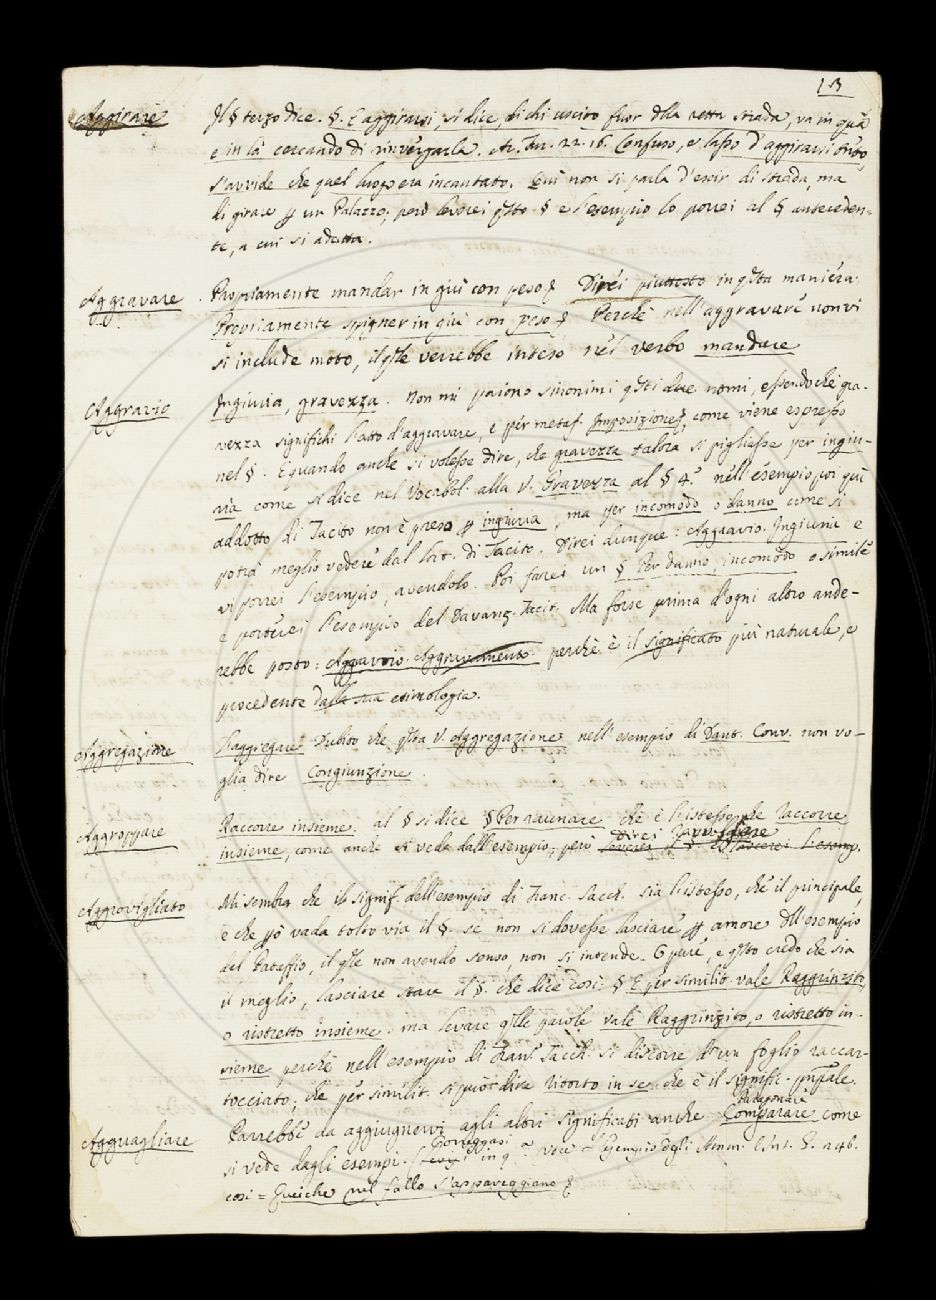 13
Aggirare Il § terzo dice. §. E aggirarsi, si dice, di chi uscito fuor della retta strada, va in quà
e in là cercando di rinvergarla. Ar. Fur. 22. 16. Confuso, e lasso d'aggirarsi tutto,
s'avvide che quel luogo era incantato. Quì non si parla d'escir di strada, ma
di girare p un Palazzo; però leverei qsto § e l'esempio lo porrei al § anteceden=
te, a cui si adatta.
Aggravare Propriamente mandar in giù con peso. Direi piuttosto in qsta maniera:
Propriamente spigner in giù con peso. Perchè nell'aggravare non vi
si include moto, il qle verrebbe inteso nel verbo mandare
Aggravio Ingiuria, gravezza. Non mi paiono sinonimi qsti due nomi, essendochè gra-
vezza significhi l'atto d'aggravare, e per metaf. Imposizione, come viene espresso
nel §. E quando anche si volesse dire, che gravezza talora si pigliasse per ingiu-
ria come si dice nel Vocabol. alla V. Gravezza al § 4.° nell'esempio poi quì
addotto di Tacito non è preso p ingiuria, ma per incomodo o danno come si
potrà meglio vedere dal Lat. di Tacito. Direi dunque: Aggravio. Ingiuria e
vi porrei l'esempio, avendolo. Poi farei un § Per danno, incomodo o simile
e porterei l'esempio del Davanz. Tacit. Ma forse prima d'ogni altro ande-
rebbe posto: Aggravio. Aggravamento. perchè è il significato più naturale, e
procedente dalla sua etimologia.
Aggregazione L'aggregare Dubito che qsta V. Aggregazione nell'esempio di Dant. Conv. non vo-
glia dire Congiunzione.
Aggroppare Raccorre insieme. al § si dice § Per raunare che è l'istesso che Raccorre
insieme, come anche si vede dall'esempio; però leverei il § e lascerei l'esemp.
direi
Aggrovigliato Mi sembra che il signif. dell'esempio di Franc. Sacch. sia l'istesso, che il principale,
e che pò vada tolto via il §. se non si dovesse lasciare p amore dell'esempio
del Pataffio, il qle non avendo senso, non si intende. Oppure, e qsto credo che sia
il meglio, lasciare stare il §. che dice così: § E per similit. vale Raggrinzito,
o ristretto insieme. ma levare qlle parole vale Raggrinzito, o ristretto in-
sieme perchè nell'esempio di Fran. Sacch. si discorre d'un foglio raccar-
tocciato; che per similit. si può dire Ritorto in se, che è il signific. prinpale.
Paragonare
Agguagliare Parrebbe da aggiugnervi agli altri significati anche Comparare, come
si vede dagli esempi. (Correggasi in qa voce l'Esempio degli Amm. Ant. G. 246.
così = Queiche nel fallo s'appareggiano